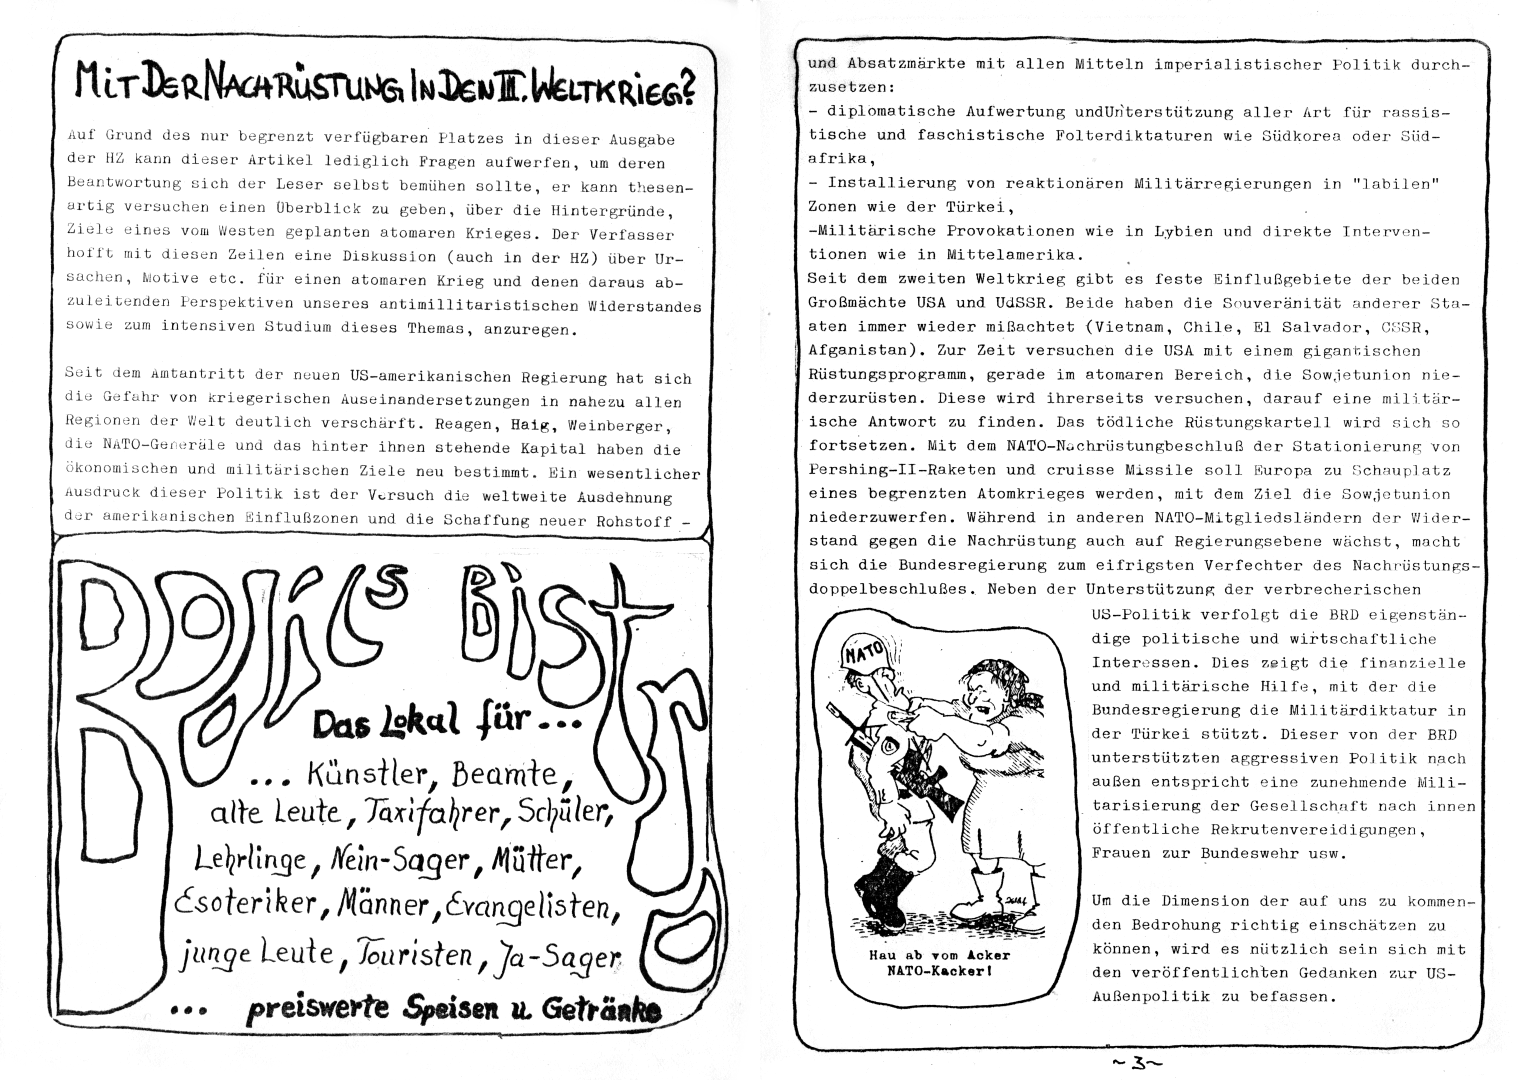 MIT DER NACHRÜSTUNG IN DEN III. WELTKRIEG?
Auf Grund des nur begrenzt verfügbaren Platzes in dieser Ausgabe
der HZ kann dieser Artikel lediglich Fragen aufwerfen, um deren
Beantwortung sich der Leser selbst bemühen sollte, er kann thesen-
artig versuchen einen Überblick zu geben, über die Hintergründe,
Ziele eines vom Westen geplanten atomaren Krieges. Der Verfasser
hofft mit diesen Zeilen eine Diskussion (auch in der HZ) über Ur-
sachen, Motive etc. für einen atomaren Krieg und denen daraus ab-
zuleitenden Perspektiven unseres antimillitaristischen Widerstandes
sowie zum intensiven Studium dieses Themas, anzuregen.
Seit dem Amtantritt der neuen US-amerikanischen Regierung hat sich
die Gefahr von kriegerischen Auseinandersetzungen in nahezu allen
Regionen der Welt deutlich verschärft. Reagen, Haig, Weinberger,
die NATO-Generäle und das hinter ihnen stehende Kapital haben die
ökonomischen und militärischen Ziele neu bestimmt. Ein wesentlicher
Ausdruck dieser Politik ist der Versuch die weltweite Ausdehnung
der amerikanischen Einflußzonen und die Schaffung neuer Rohstoff -
BISTRO
Das Lokal für...
... Künstler, Beamte,
alte Leute, Taxifahrer, Schüler,
Lehrlinge, Nein-Sager, Mütter,
Esoteriker, Männer, Evangelisten,
junge Leute, Touristen, Ja-Sager
... preiswerte Speisen u. Getränke
und Absatzmärkte mit allen Mitteln imperialistischer Politik durch-
zusetzen:
- diplomatische Aufwertung undUnterstützung aller Art für rassis-
tische und faschistische Folterdiktaturen wie Südkorea oder Süd-
afrika,
- Installierung von reaktionären Militärregierungen in "labilen"
Zonen wie der Türkei,
-Militärische Provokationen wie in Lybien und direkte Interven-
tionen wie in Mittelamerika.
Seit dem zweiten Weltkrieg gibt es feste Einflußgebiete der beiden
Großmächte USA und UdSSR. Beide haben die Souveränität anderer Sta-
aten immer wieder mißachtet (Vietnam, Chile, El Salvador, CSSR,
Afganistan). Zur Zeit versuchen die USA mit einem gigantischen
Rüstungsprogramm, gerade im atomaren Bereich, die Sowjetunion nie-
derzurüsten. Diese wird ihrerseits versuchen, darauf eine militär-
ische Antwort zu finden. Das tödliche Rüstungskartell wird sich so
fortsetzen. Mit dem NATO-Nachrüstungbeschluß der Stationierung von
Pershing-II-Raketen und cruisse Missile soll Europa zu Schauplatz
eines begrenzten Atomkrieges werden, mit dem Ziel die Sowjetunion
niederzuwerfen. Während in anderen NATO-Mitgliedsländern der Wider-
stand gegen die Nachrüstung auch auf Regierungsebene wächst, macht
sich die Bundesregierung zum eifrigsten Verfechter des Nachrüstungs-
doppelbeschlußes. Neben der Unterstützung der verbrecherischen
US-Politik verfolgt die BRD eigenstän-
dige politische und wirtschaftliche
Interessen. Dies zeigt die finanzielle
und militärische Hilfe, mit der die
Bundesregierung die Militärdiktatur in
der Türkei stützt. Dieser von der BRD
unterstützten aggressiven Politik nach
außen entspricht eine zunehmende Mili-
tarisierung der Gesellschaft nach innen
öffentliche Rekrutenvereidigungen,
Frauen zur Bundeswehr usw.
Um die Dimension der auf uns zu kommen-
den Bedrohung richtig einschätzen zu
können, wird es nützlich sein sich mit
den veröffentlichten Gedanken zur US-
Außenpolitik zu befassen.
NATO
Hau ab vom Acker
NATO-Kacker!
~3~